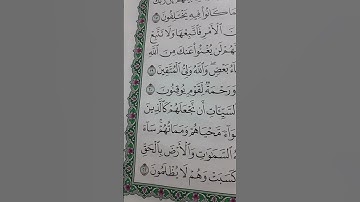 مَا كَانُوا۟ فِيهِ يَخْتَلِفُونَ ١٧
ٱلْأَمْرِ فَٱتَّبِعْهَا وَلَا تَتَّبِعْ
هُمْ لَن يُغْنُوا۟ عَنكَ مِنَ ٱللَّهِ
بَعْضٍ وَٱللَّهُ وَلِىُّ ٱلْمُتَّقِينَ ١٩
وَرَحْمَةٌ لِّقَوْمٍ يُوقِنُونَ ٢٠
ٱلسَّيِّـَٔاتِ أَن نَّجْعَلَهُمْ كَٱلَّذِينَ
مَّحْيَاهُمْ وَمَمَاتُهُمْ سَآءَ
ٱلسَّمَـٰوَٰتِ وَٱلْأَرْضَ بِٱلْحَقِّ
كَسَبَتْ وَهُمْ لَا يُظْلَمُونَ ٢٢